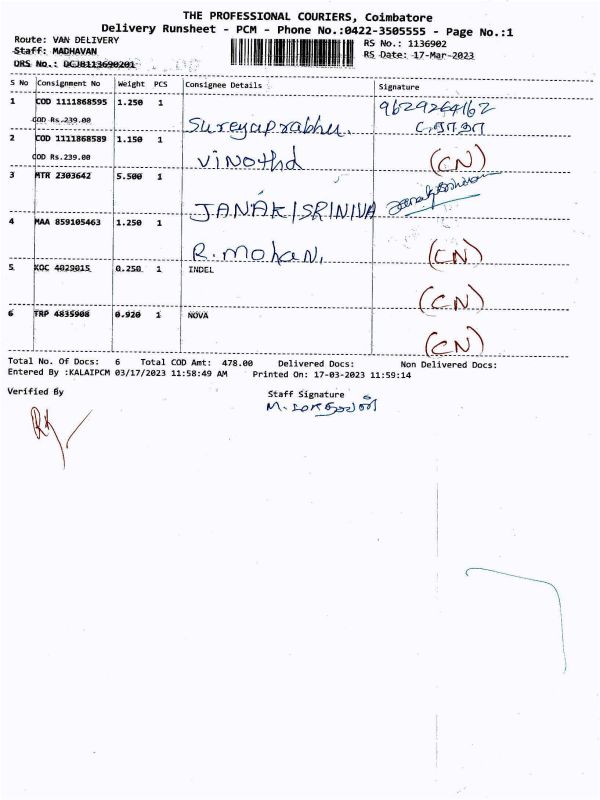 THE PROFESSIONAL COURIERS, Coimbatore
Delivery Runsheet - PCM - Phone No.:0422-3505555 - Page No.:1
Route: VAN DELIVERY RS No.: 1136902
Staff: MADHAVAN RS Date: 17-Mar-2023
DRS No.: DCJ8113690201
S No Consignment No Weight PCS Consignee Details Signature
1 COD 1111868595 1.250 1 9629264162
COD Rs.239.00 Sureyaprabhu.
2 COD 1111868589 1.150 1
COD Rs.239.00 Vinothd (CN)
3 MTR 2303642 5.500 1
JANAKISRINIVA
4 MAA 859105463 1.250 1
R.mohan. (CN)
5 KOC 4029015 0.250 1 INDEL
(CN)
6 TRP 4835908 0.920 1 NOVA
(CN)
Total No. Of Docs: 6 Total COD Amt: 478.00 Delivered Docs: Non Delivered Docs:
Entered By :KALAIPCM 03/17/2023 11:58:49 AM Printed On: 17-03-2023 11:59:14
Verified By Staff Signature
M. மாதவன்